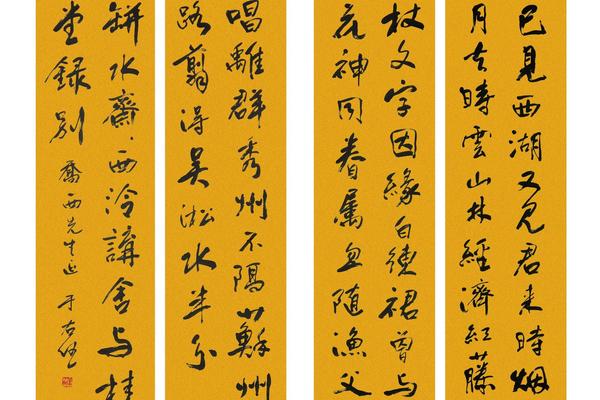 已見西湖又見君来時烟
月去時雲山林經濟紅藤
杖文字因緣白練裙曾与
花神同眷属忍随漁父
唱離群秀州不隔蘇州
路翦得吴淞水半分
缾水齋西泠講舍与桂
堂録别
喬西先生正 于右任